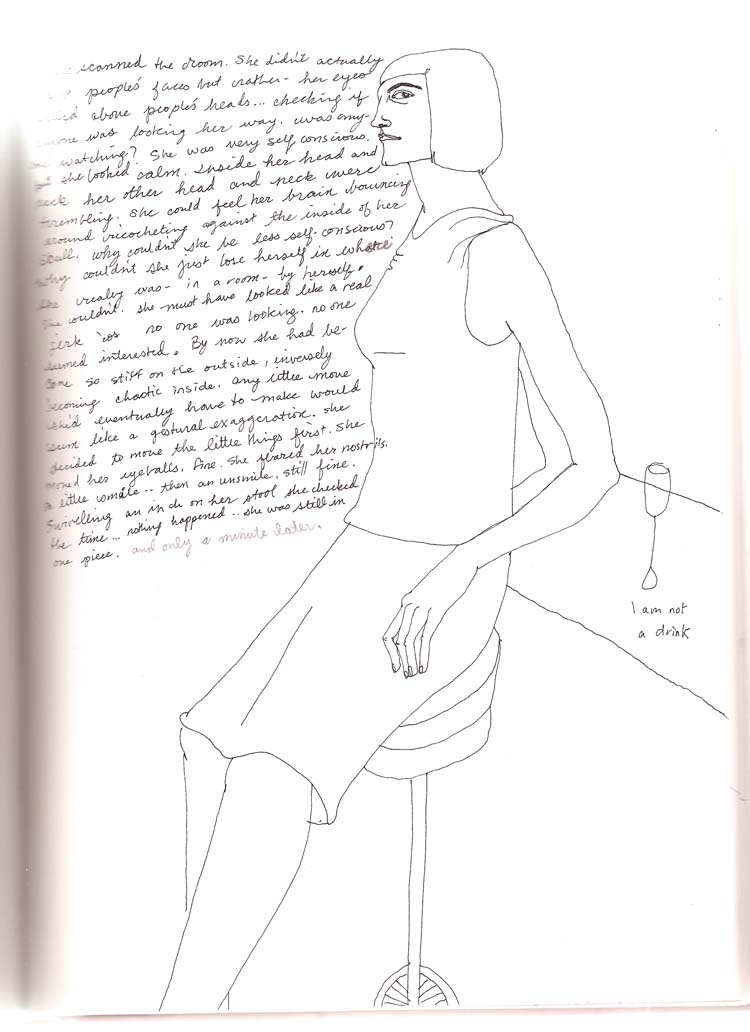 scanned the room. She didn't actually
people's faces but rather - her eyes
above people's heads... checking if
was looking her way. was any-
watching? She was very self conscious.
she looked calm. inside her head and
neck her other head and neck were
trembling. She could feel her brain bouncing
around ricocheting against the inside of her
scull. why couldn't she be less self-conscious?
why couldn't she just lose herself in where
she realy was - in a room - by herself.
She couldn't. she must have looked like a real
jerk 'cos no one was looking. no one
seemed interested. By now she had be-
come so stiff on the outside, inversely
becoming chaotic inside. any little move
she'd eventually have to make would
seem like a gestural exaggeration. she
decided to move the little things first. She
moved her eyeballs. Fine. She flared her nostrils.
a little smile.. then an unsmile. still fine.
Swivelling an inch on her stool she checked
the time... nothing happened.. she was still in
one piece. and only a minute later.
I am not
a drink